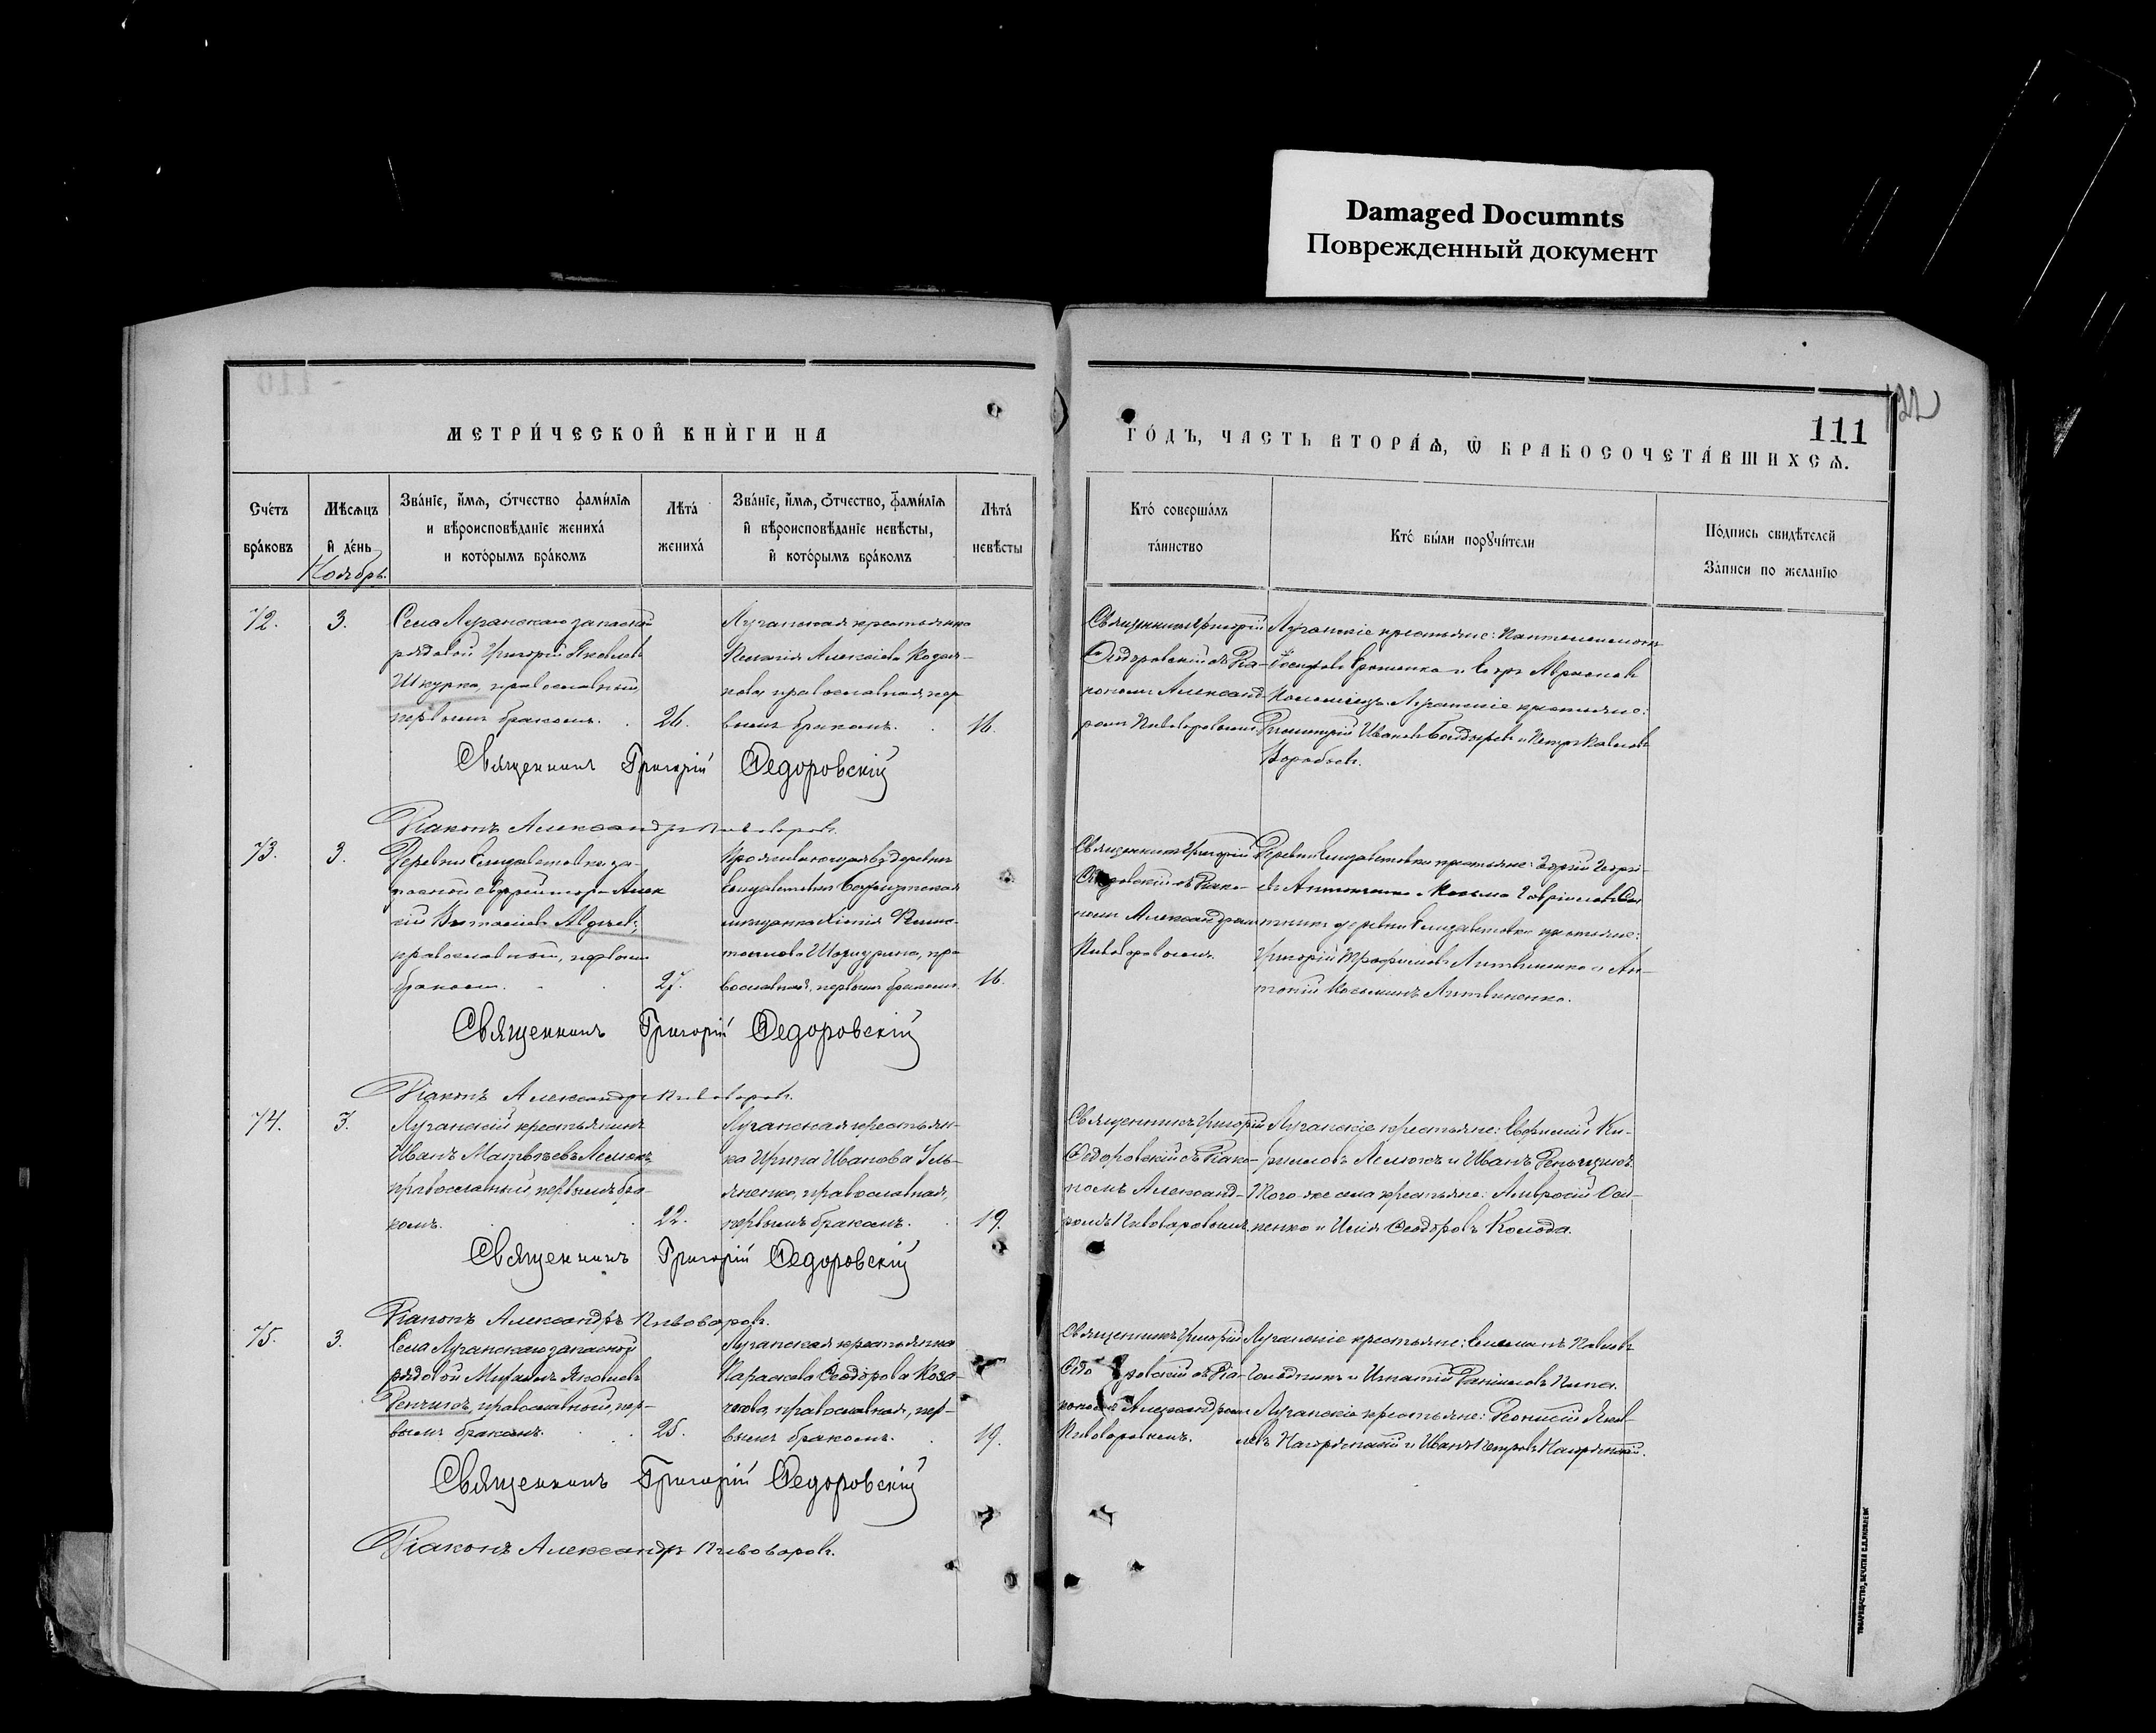 Damaged Documnts
Поврежденный документ
122
111
МЕТРИ́ЧЕСКОЙ КНИ́ГИ НА
ГО́ДЪ, ЧАСТЬ ВТОРА́Ѧ, Ѡ БРАКОСОЧЕТА́ВШИХСѦ.
Сче́тъ
бра́ковъ
Мѣ́сѧцъ
и҆ де́нь
Ноябрь.
Зва́нїе, и҆́мѧ, ѻ҆́тчество фами́лїѧ
и вѣроисповѣ́данїе жениха́
и кото́рымъ бра́комъ
Лѣта̀
жениха́
Зва́нїе, и҆́мѧ, ѻ҆́тчество, фами́лїѧ
и҆ вѣроисповѣ́данїе невѣ́сты,
и҆ кото́рымъ бра́комъ
Лѣта̀
невѣ́сты
Кто́ соверша́лъ
та́инство
Кто́ бы́ли порꙋчи́тели
По́дпись свидѣ́телей
За́писи по жела́нїю
72.
3.
Села Луганскаго запасной
рядовой Григорій Яковлевъ
Шкурка, православный,
первымъ бракомъ.
26.
Луганская крестьянка
Пелагія Алексіева
православная, пер
вымъ бракомъ.
16.
Священникъ Григорій
Ѳедоровскій съ Діа-
кономъ Александ-
ромъ Пивоваровымъ
Луганскіе крестьяне: Пантелеимонъ
Еременко и Егоръ
Коломіецъ. Луганскіе крестьяне:
Димитрій Ивановъ Болдыревъ и Петръ Павловъ
Воробьевъ.
Священникъ Григорій Ѳедоровскій
Діаконъ Александръ Пивоваровъ.
73.
3.
Деревни Елизаветовки за-
пасной Алек
сій
православный, первымъ
бракомъ.
27.
Проживающая въ деревнѣ
Елизаветовкѣ
мѣщанка
пра
вославная, первымъ бракомъ.
16.
Священникъ Григорій
Ѳедоровскій съ Діако-
номъ Александромъ
Пивоваровымъ.
Деревни Елизаветовки крестьяне:
деревни Елизаветовки крестьяне:
Григорій Трофимовъ Литвиненко и Ан-
тоній Косьминъ Литвиненко.
Священникъ Григорій Ѳедоровскій
Діаконъ Александръ Пивоваровъ.
74.
3.
Луганскій крестьянинъ
Иванъ Матвѣевъ Лемюкъ,
православный, первымъ бра-
комъ.
22.
Луганская крестьян-
ка Ирина Иванова Уль-
яненко, православная,
первымъ бракомъ.
19.
Священникъ Григорій
Ѳедоровскій съ Діако-
номъ Александ-
ромъ Пивоваровымъ.
Луганскіе крестьяне: Евфимій Ки-
рилловъ Лемюкъ и Иванъ
Того-же села крестьяне: Амвросій Оси-
пенко и Илія Ѳеодоровъ Колода.
Священникъ Григорій Ѳедоровскій
Діаконъ Александръ Пивоваровъ.
75.
3.
Села Луганскаго запасной
рядовой Михаилъ Яковлевъ
православный, пер-
вымъ бракомъ.
25.
Луганская крестьянка
Параскева Ѳеодорова Коза-
кова, православная, пер-
вымъ бракомъ.
19.
Священникъ Григорій
Ѳедоровскій съ Діа-
кономъ Александромъ
Пивоваровымъ.
Луганскіе крестьяне: Павловъ
и Игнатій Даніиловъ
Луганскіе крестьяне: Діонисій Яков-
левъ Нагорянскій и Иванъ Петровъ Нагорянскій.
Священникъ Григорій Ѳедоровскій
Діаконъ Александръ Пивоваровъ.